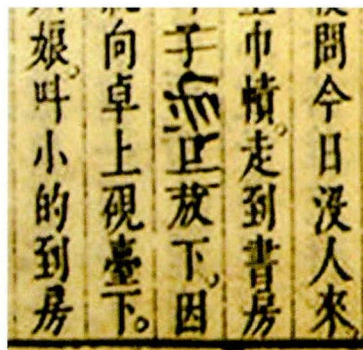 問今日沒人來
巾幘。走到書房
子
放下。因
向卓上硯臺下。
娘。叫小的到房